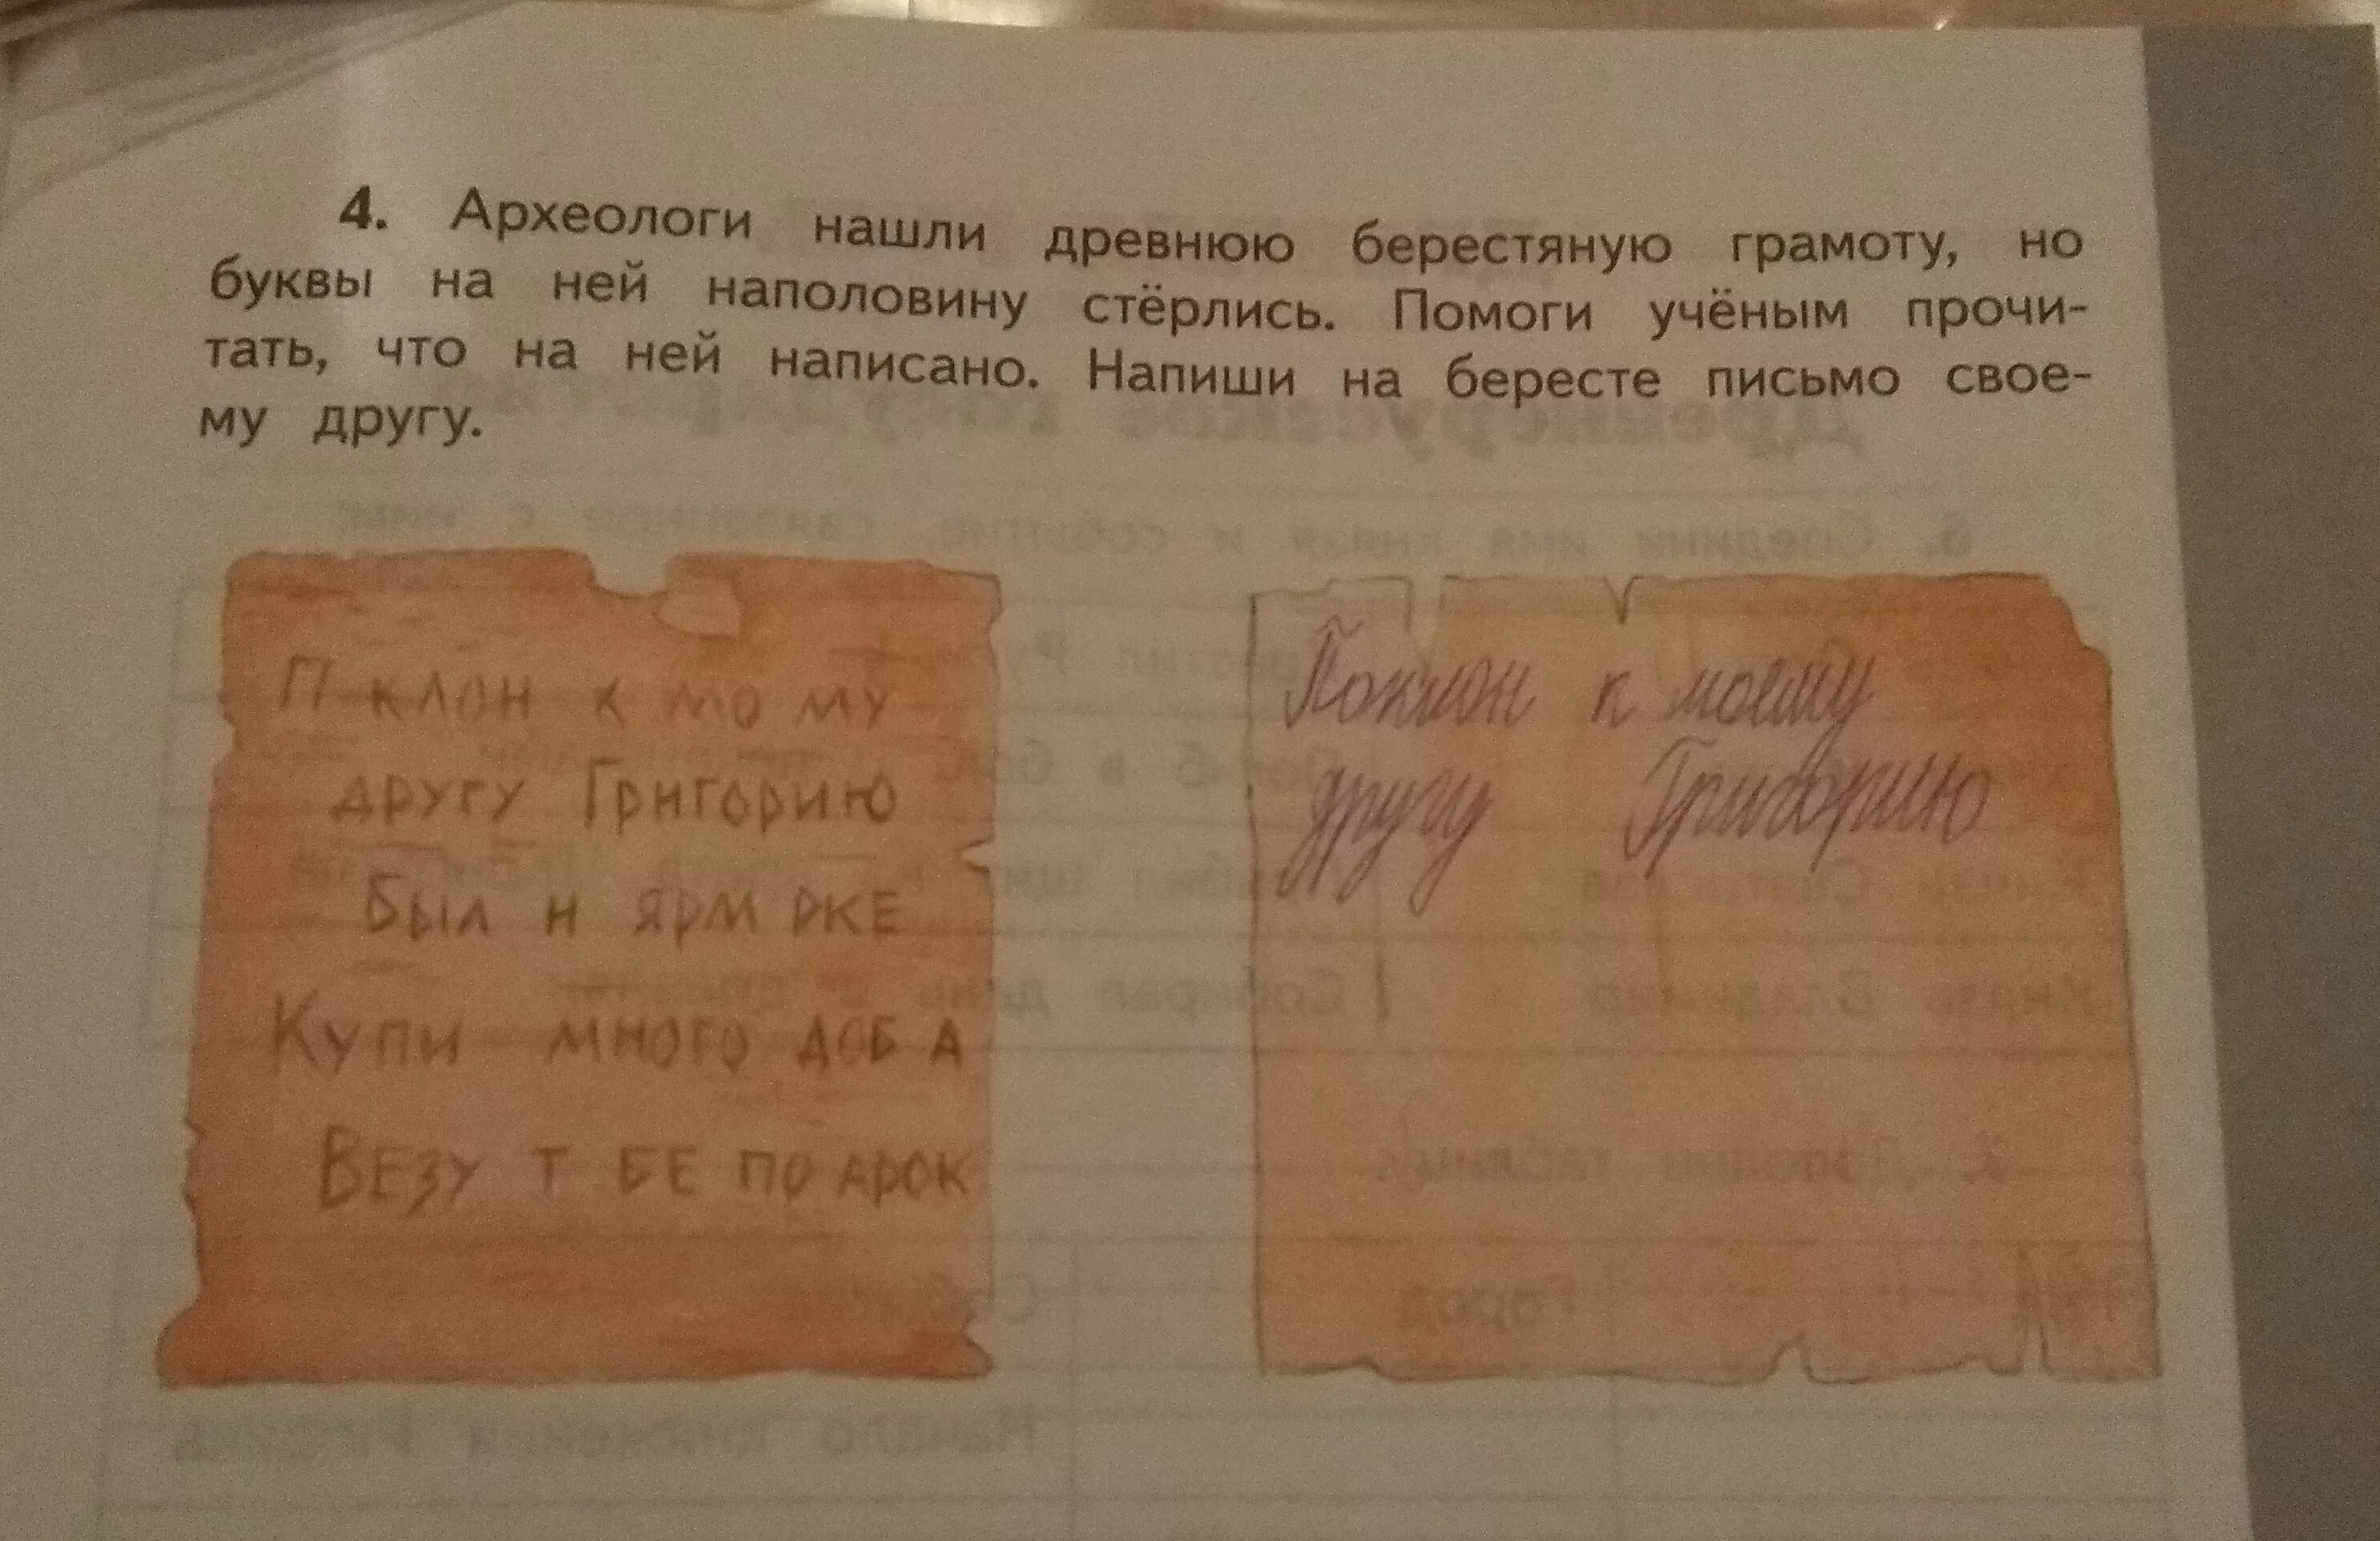 4. Археологи нашли древнюю берестяную грамоту, но
буквы на ней наполовину стёрлись. Помоги учёным прочи-
тать, что на ней написано. Напиши на бересте письмо свое-
му другу.
П КЛОН К МО МУ
ДРУГУ ГРИГОРИЮ
БЫЛ Н ЯРМ РКЕ
КУПИ МНОГО ДОБ А
ВЕЗУ Т БЕ ПО АРОК
Поклон к моему
другу Григорию